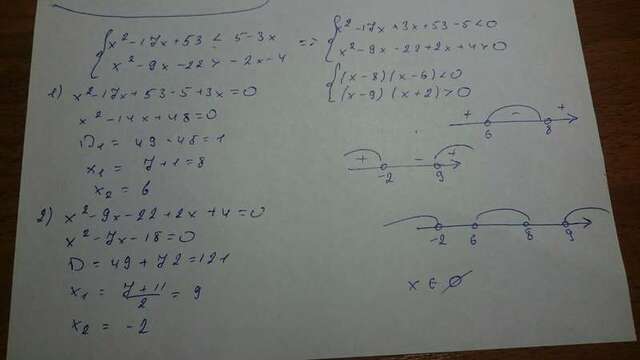 { x² - 17x + 53 < 5 - 3x
x² - 9x - 22 > -2x - 4
=> { x² - 17x + 3x + 53 - 5 < 0
x² - 9x - 22 + 2x + 4 > 0
{ (x - 8)(x - 6) < 0
(x - 9)(x + 2) > 0
1) x² - 17x + 53 - 5 + 3x = 0
x² - 14x + 48 = 0
D₁ = 49 - 48 = 1
x₁ = 7 + 1 = 8
x₂ = 6
2) x² - 9x - 22 + 2x + 4 = 0
x² - 7x - 18 = 0
D = 49 + 72 = 121
x₁ = (7 + 11)/2 = 9
x₂ = -2
+ - +
6 8
+ - +
-2 9
-2 6 8 9
x ∈ ∅